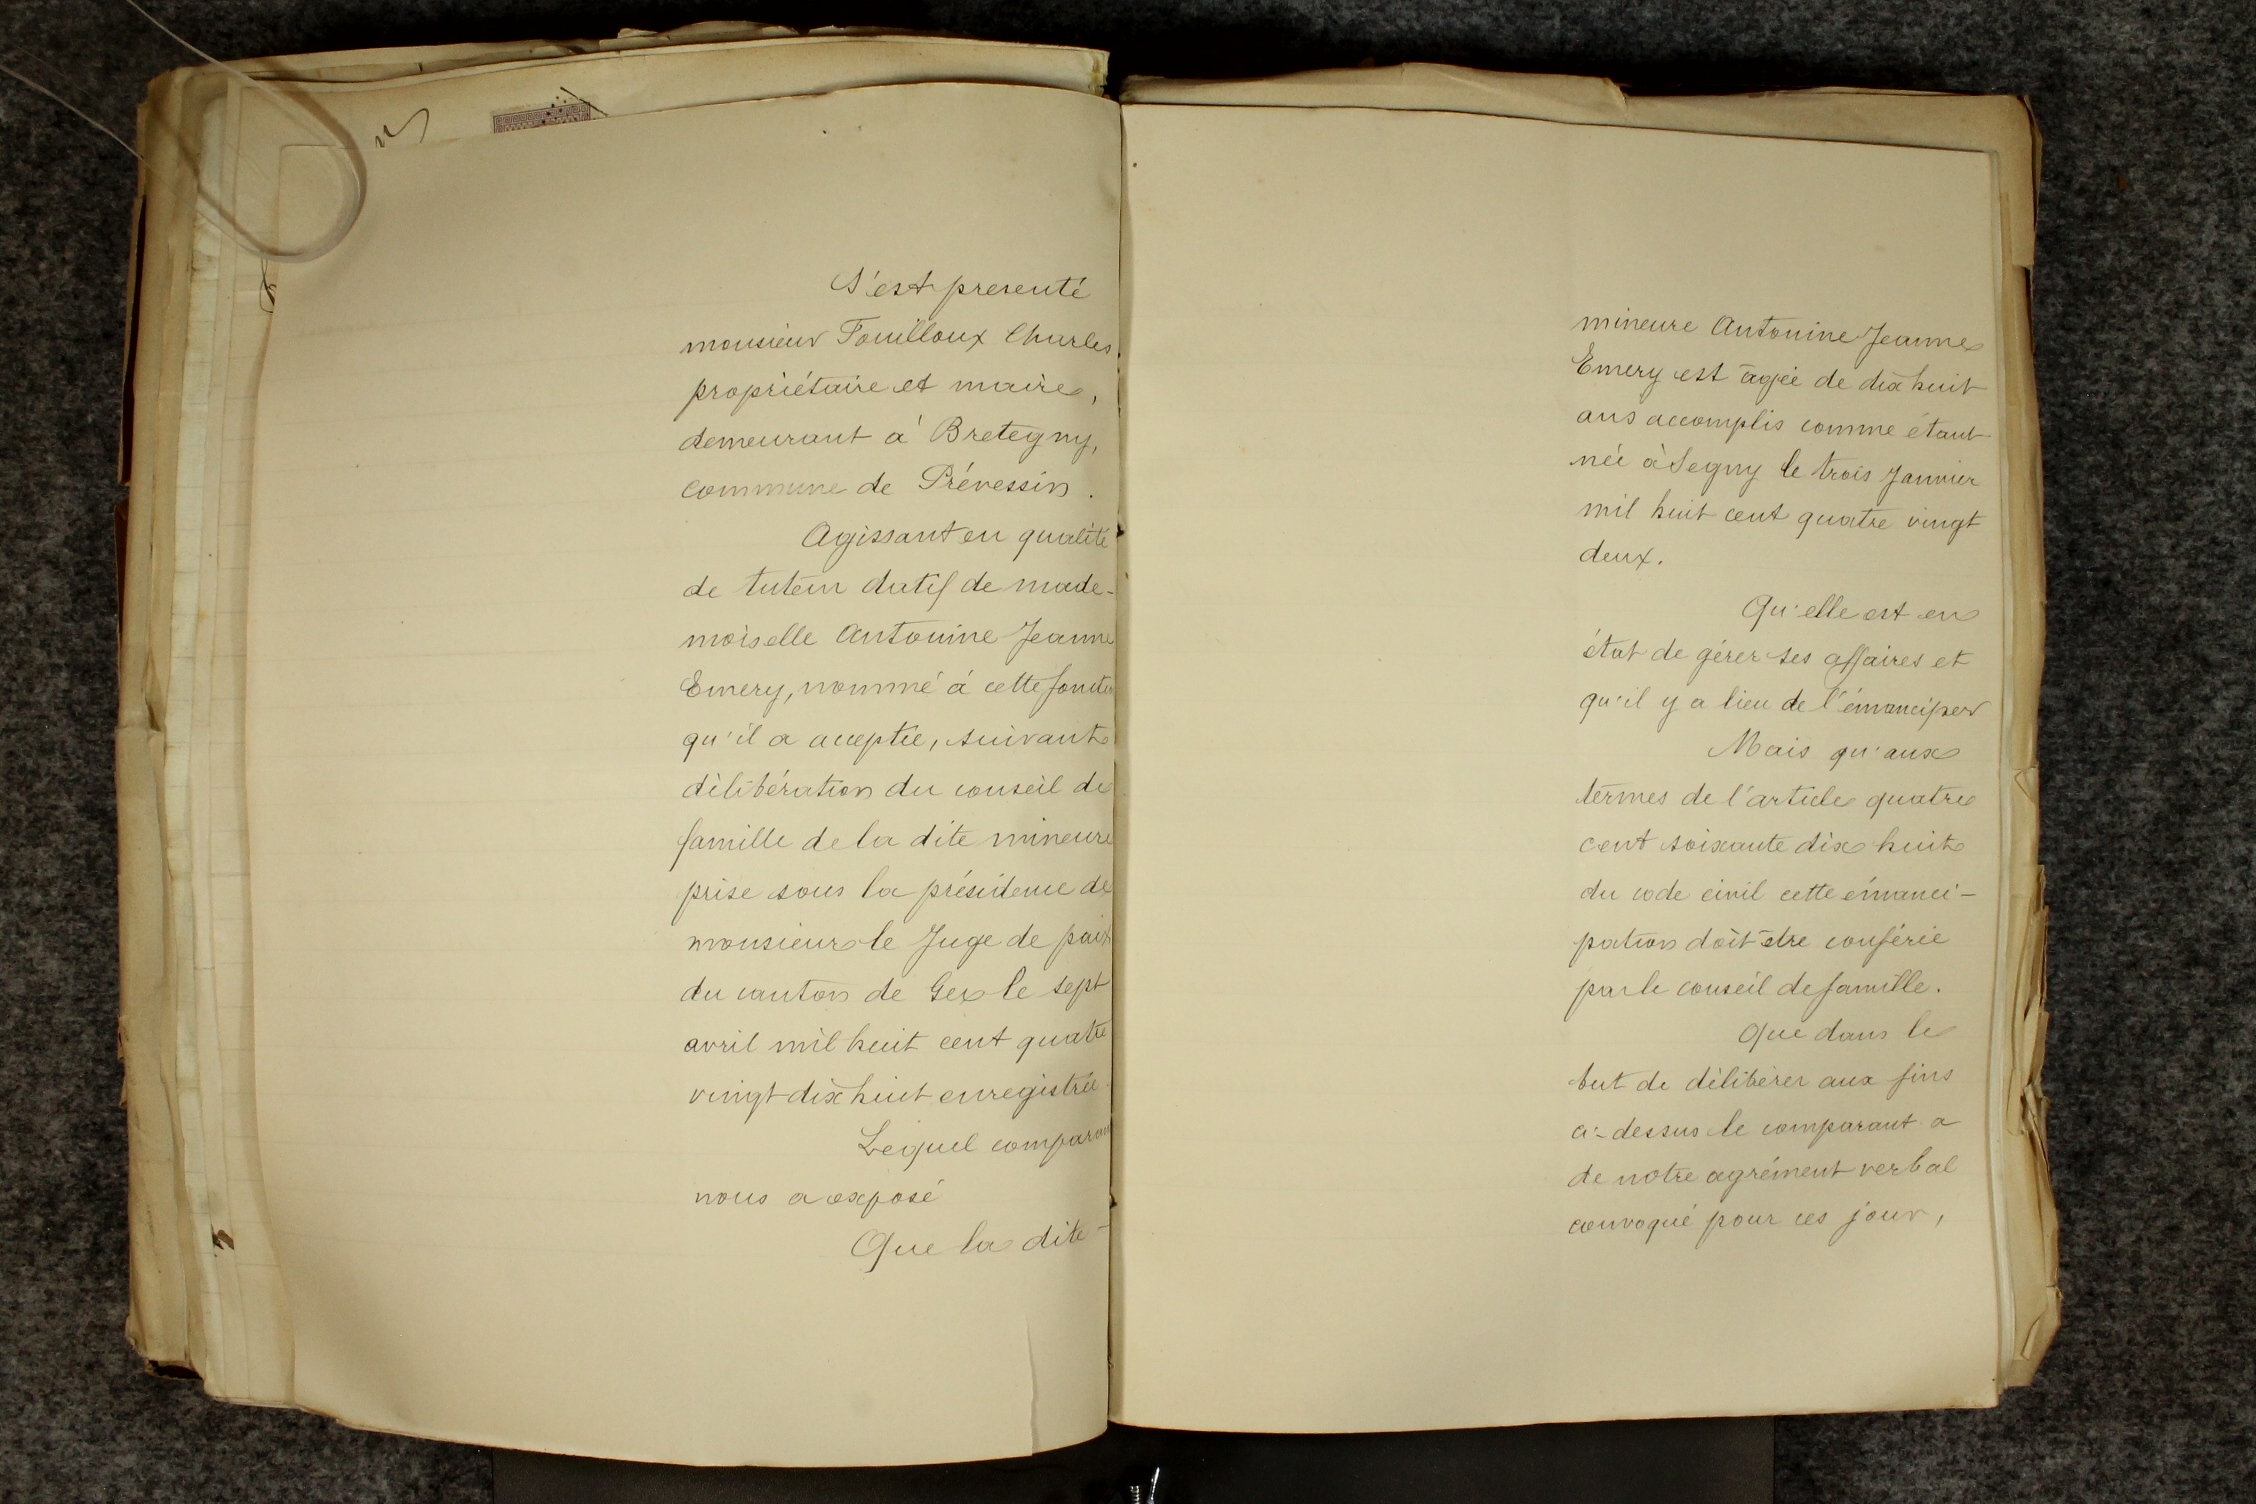 S'est presenté
monsieur Fouilloux Charles
propriétaire et maire,
demeurant à Bretegny,
commune de Prévessin.
Agissant en qualité
de tuteur datif de made-
moiselle Antonine Jeanne
Emery, nommé à cette
qu'il a acceptée, suivant
délibération du conseil de
famille de la dite mineure
prise sous la présidence de
monsieur le Juge de paix
du canton de Gex le sept
avril mil huit cent quatre
vingt dix huit enregistrée.
Lequel comparant
nous a exposé
Que la dite -
mineure Antonine Jeanne
Emery est âgée de dix huit
ans accomplis comme étant
née à Segny le trois Janvier
mil huit cent quatre vingt
deux.
Qu'elle est en
état de gérer ses affaires et
qu'il y a lieu de l'émanciper
Mais qu'aux
termes de l'article quatre
cent soixante dix huit
du code civil cette émanci-
pation doit être conférée
par le conseil de famille.
Que dans le
but de délibérer aux fins
ci-dessus le comparant a
de notre agrément verbal
convoqué pour ces jour,